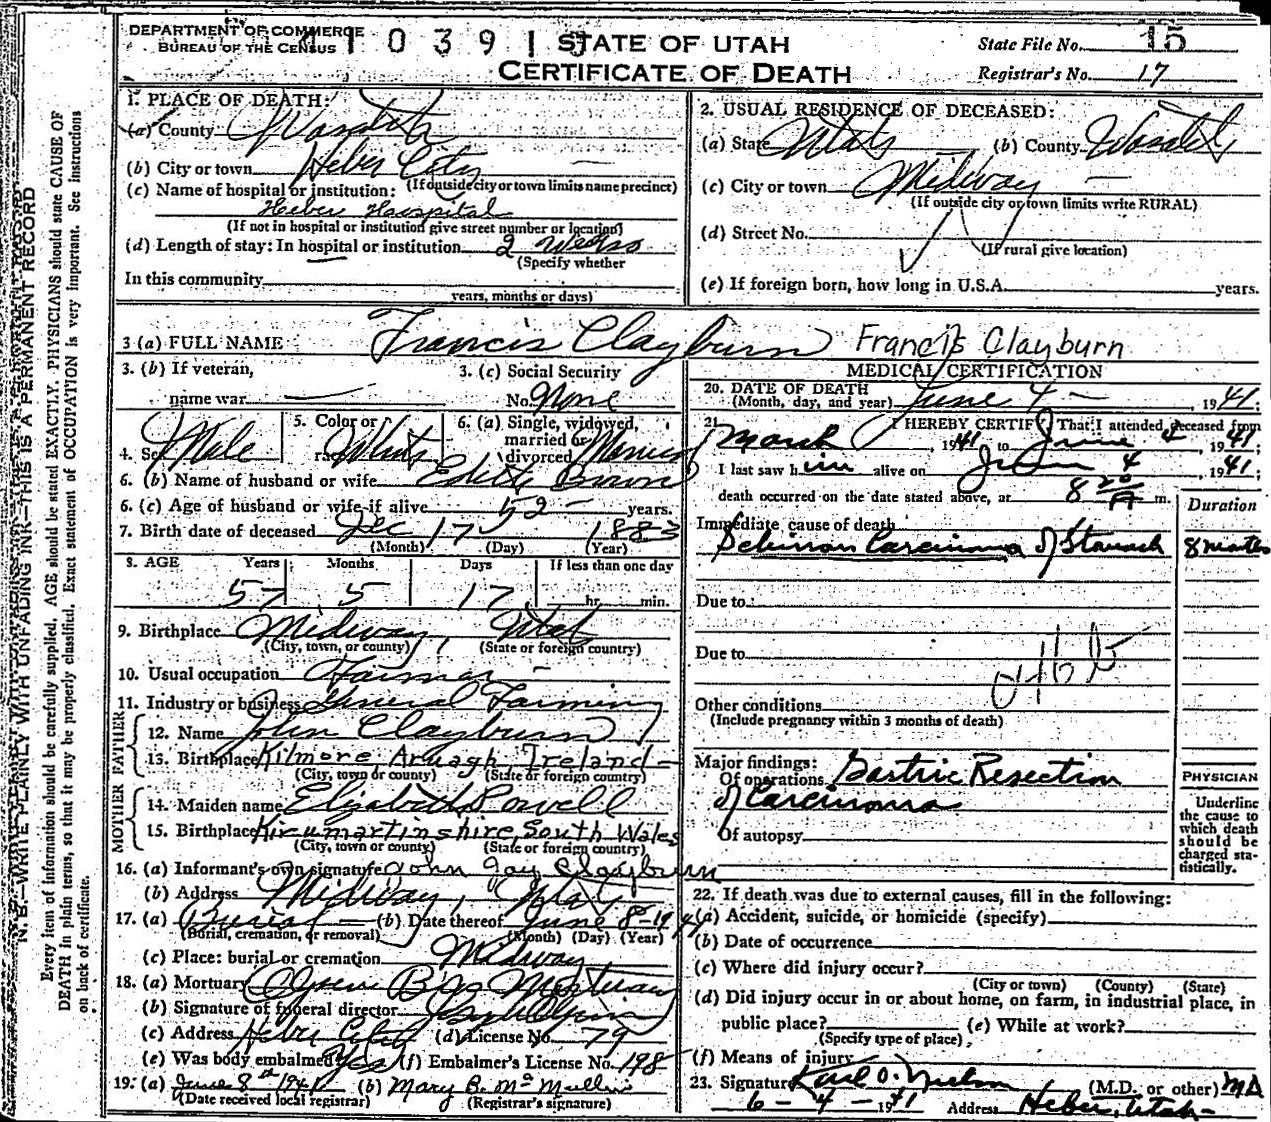 DEPARTMENT OF COMMERCE
BUREAU OF THE CENSUS
STATE OF UTAH
CERTIFICATE OF DEATH
State File No. 15
Registrar's No. 17
N. B.—WRITE PLAINLY WITH UNFADING INK—THIS IS A PERMANENT RECORD
Every item of information should be carefully supplied. AGE should be stated EXACTLY. PHYSICIANS should state CAUSE OF
DEATH in plain terms, so that it may be properly classified. Exact statement of OCCUPATION is very important. See instructions
on back of certificate.
1. PLACE OF DEATH:
(a) County Wasatch
(b) City or town Heber City
(If outside city or town limits name precinct)
(c) Name of hospital or institution:
Heber Hospital
(If not in hospital or institution give street number or location)
(d) Length of stay: In hospital or institution 2 weeks
(Specify whether
In this community
years, months or days)
2. USUAL RESIDENCE OF DECEASED:
(a) State Utah (b) County Wasatch
(c) City or town Midway
(If outside city or town limits write RURAL)
(d) Street No.
(If rural give location)
(e) If foreign born, how long in U.S.A. years.
3 (a) FULL NAME Francis Clayburn Francis Clayburn
3. (b) If veteran,
name war —
3. (c) Social Security
No. None
4. Sex Male
5. Color or
race White
6. (a) Single, widowed,
married or
divorced Married
6. (b) Name of husband or wife Edith Bronson
6. (c) Age of husband or wife if alive 52 years.
7. Birth date of deceased Dec 17 1883
(Month) (Day) (Year)
8. AGE Years Months Days If less than one day
57 5 17 hr. min.
9. Birthplace Midway, Utah
(City, town, or county) (State or foreign country)
10. Usual occupation Farmer
11. Industry or business General Farming
FATHER
12. Name John Clayburn
13. Birthplace Kilmore, Armagh, Ireland
(City, town or county) (State or foreign country)
MOTHER
14. Maiden name Elizabeth Powell
15. Birthplace South Wales
(City, town or county) (State or foreign country)
16. (a) Informant's own signature John Jay Clayburn
(b) Address Midway, Utah
17. (a) Burial (b) Date thereof June 8-1941
(Burial, cremation, or removal) (Month) (Day) (Year)
(c) Place: burial or cremation Midway
18. (a) Mortuary Mortuary
(b) Signature of funeral director
(c) Address Heber City (d) License No. 79
(e) Was body embalmed? Yes (f) Embalmer's License No. 198
19. (a) June 8th 1941 (b) Mary B. McMullin
(Date received local registrar) (Registrar's signature)
MEDICAL CERTIFICATION
20. DATE OF DEATH
(Month, day, and year) June 4 — , 1941;
21. I HEREBY CERTIFY That I attended deceased from
March , 1941 to June 4 , 1941;
I last saw him alive on June 4 , 1941;
death occurred on the date stated above, at 8 20 A m.
Duration
Immediate cause of death
Carcinoma of Stomach 8 months
Due to
Due to
46b
Other conditions
(Include pregnancy within 3 months of death)
Major findings:
Of operations Gastric Resection
of Carcinoma
Of autopsy
PHYSICIAN
Underline
the cause to
which death
should be
charged sta-
tistically.
22. If death was due to external causes, fill in the following:
(a) Accident, suicide, or homicide (specify)
(b) Date of occurrence
(c) Where did injury occur?
(City or town) (County) (State)
(d) Did injury occur in or about home, on farm, in industrial place, in
public place? (e) While at work?
(Specify type of place)
(f) Means of injury
23. Signature Karl O. Nielson (M.D. or other) MD
6-4-1941 Address Heber, Utah